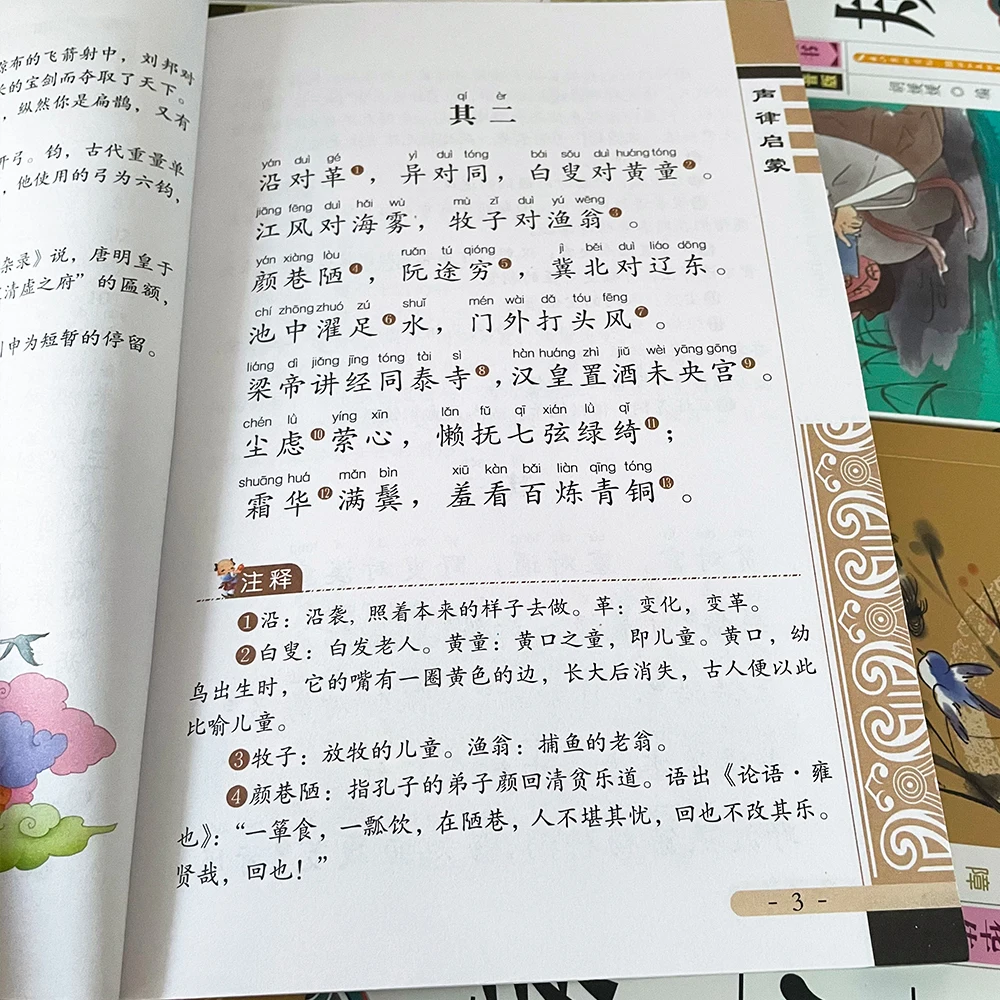 惊布的飞箭射中，刘邦对
的宝剑而夺取了天下。
，纵然你是扁鹊，又有
开弓。钧，古代重量单
，他使用的弓为六钧，
杂录》说，唐明皇于
清虚之府”的匾额，
申为短暂的停留。
qí èr
其二
yán duì gé yì duì tóng bái sǒu duì huáng tóng
沿对革❶，异对同，白叟对黄童❷。
jiāng fēng duì hǎi wù mù zǐ duì yú wēng
江风对海雾，牧子对渔翁❸。
yán xiàng lòu ruǎn tú qióng jì běi duì liáo dōng
颜巷陋❹，阮途穷❺，冀北对辽东。
chí zhōng zhuó zú shuǐ mén wài dǎ tóu fēng
池中濯足❻水，门外打头风❼。
liáng dì jiǎng jīng tóng tài sì hàn huáng zhì jiǔ wèi yāng gōng
梁帝讲经同泰寺❽，汉皇置酒未央宫❾。
chén lǜ yíng xīn lǎn fǔ qī xián lǜ qǐ
尘虑❿萦心，懒抚七弦绿绮⓫；
shuāng huá mǎn bìn xiū kàn bǎi liàn qīng tóng
霜华⓬满鬓，羞看百炼青铜⓭。
注释
❶沿：沿袭，照着本来的样子去做。革：变化，变革。
❷白叟：白发老人。黄童：黄口之童，即儿童。黄口，幼
鸟出生时，它的嘴有一圈黄色的边，长大后消失，古人便以此
比喻儿童。
❸牧子：放牧的儿童。渔翁：捕鱼的老翁。
❹颜巷陋：指孔子的弟子颜回清贫乐道。语出《论语·雍
也》：“一箪食，一瓢饮，在陋巷，人不堪其忧，回也不改其乐。
贤哉，回也！”
- 3 -
声律启蒙
书
音版
障